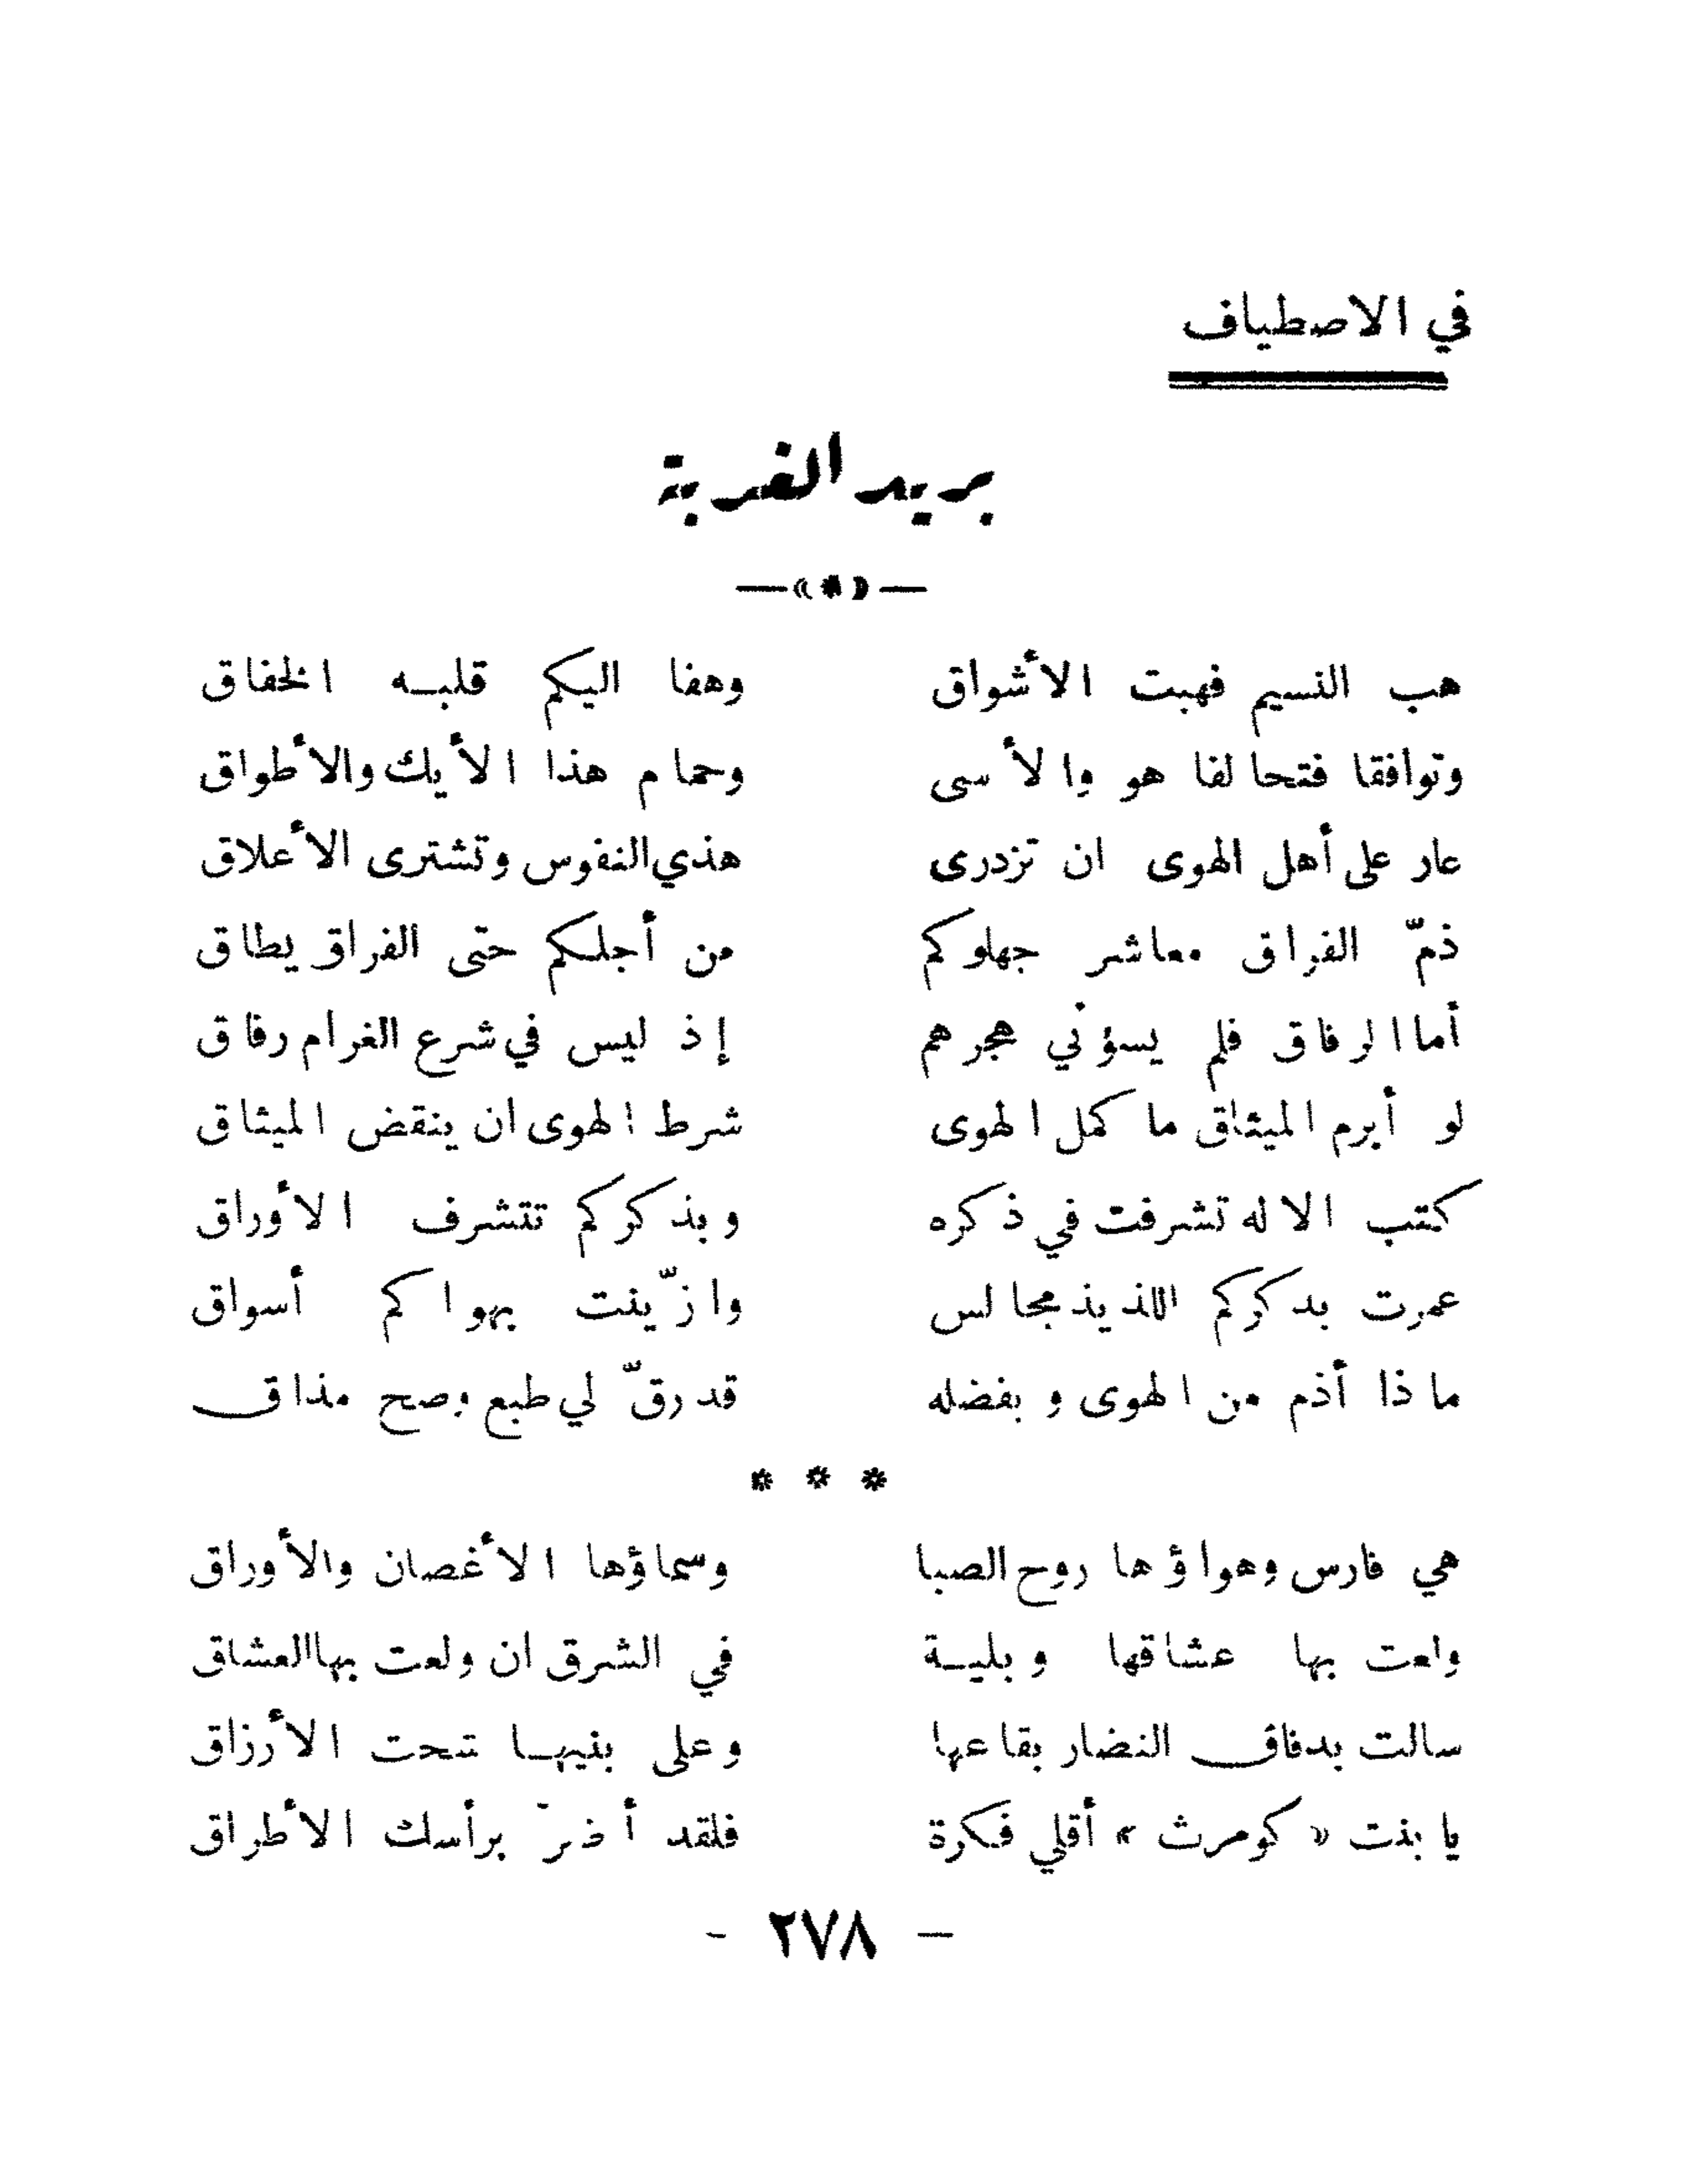 في الاصطياف
بريد الغربة
— (*) —
هب النسيم فهبت الأشواق وهفا اليكم قلبـه الخفاق
وتوافقا فتحالفا هو والأسى وحمام هذا الأيك والأطواق
عار على أهل الهوى ان تزدرى هذي النفوس وتشترى الأعلاق
ذمّ الفراق معاشر جهلوكم من أجلكم حتى الفراق يطاق
أما الرفاق فلم يسؤني هجرهم إذ ليس في شرع الغرام رفاق
لو أبرم الميثاق ما كمل الهوى شرط الهوى ان ينقض الميثاق
كتب الاله تشرفت في ذكره وبذكركم تتشرف الأوراق
عمرت بذكركم اللذيذ مجالس وازّينت بهواكم أسواق
ماذا أذم من الهوى وبفضله قد رقّ لي طبع وصح مذاق
* * *
هي فارس وهواؤها روح الصبا وسماؤها الأغصان والأوراق
ولعت بها عشاقها وبليـة في الشرق ان ولعت بها العشاق
سالت بدفاق النضار بقاعها وعلى بنيهـا شحت الأرزاق
يا بنت « كومرث » أقلي فكرة فلقد أضرّ برأسك الأطراق
- ٢٧٨ -